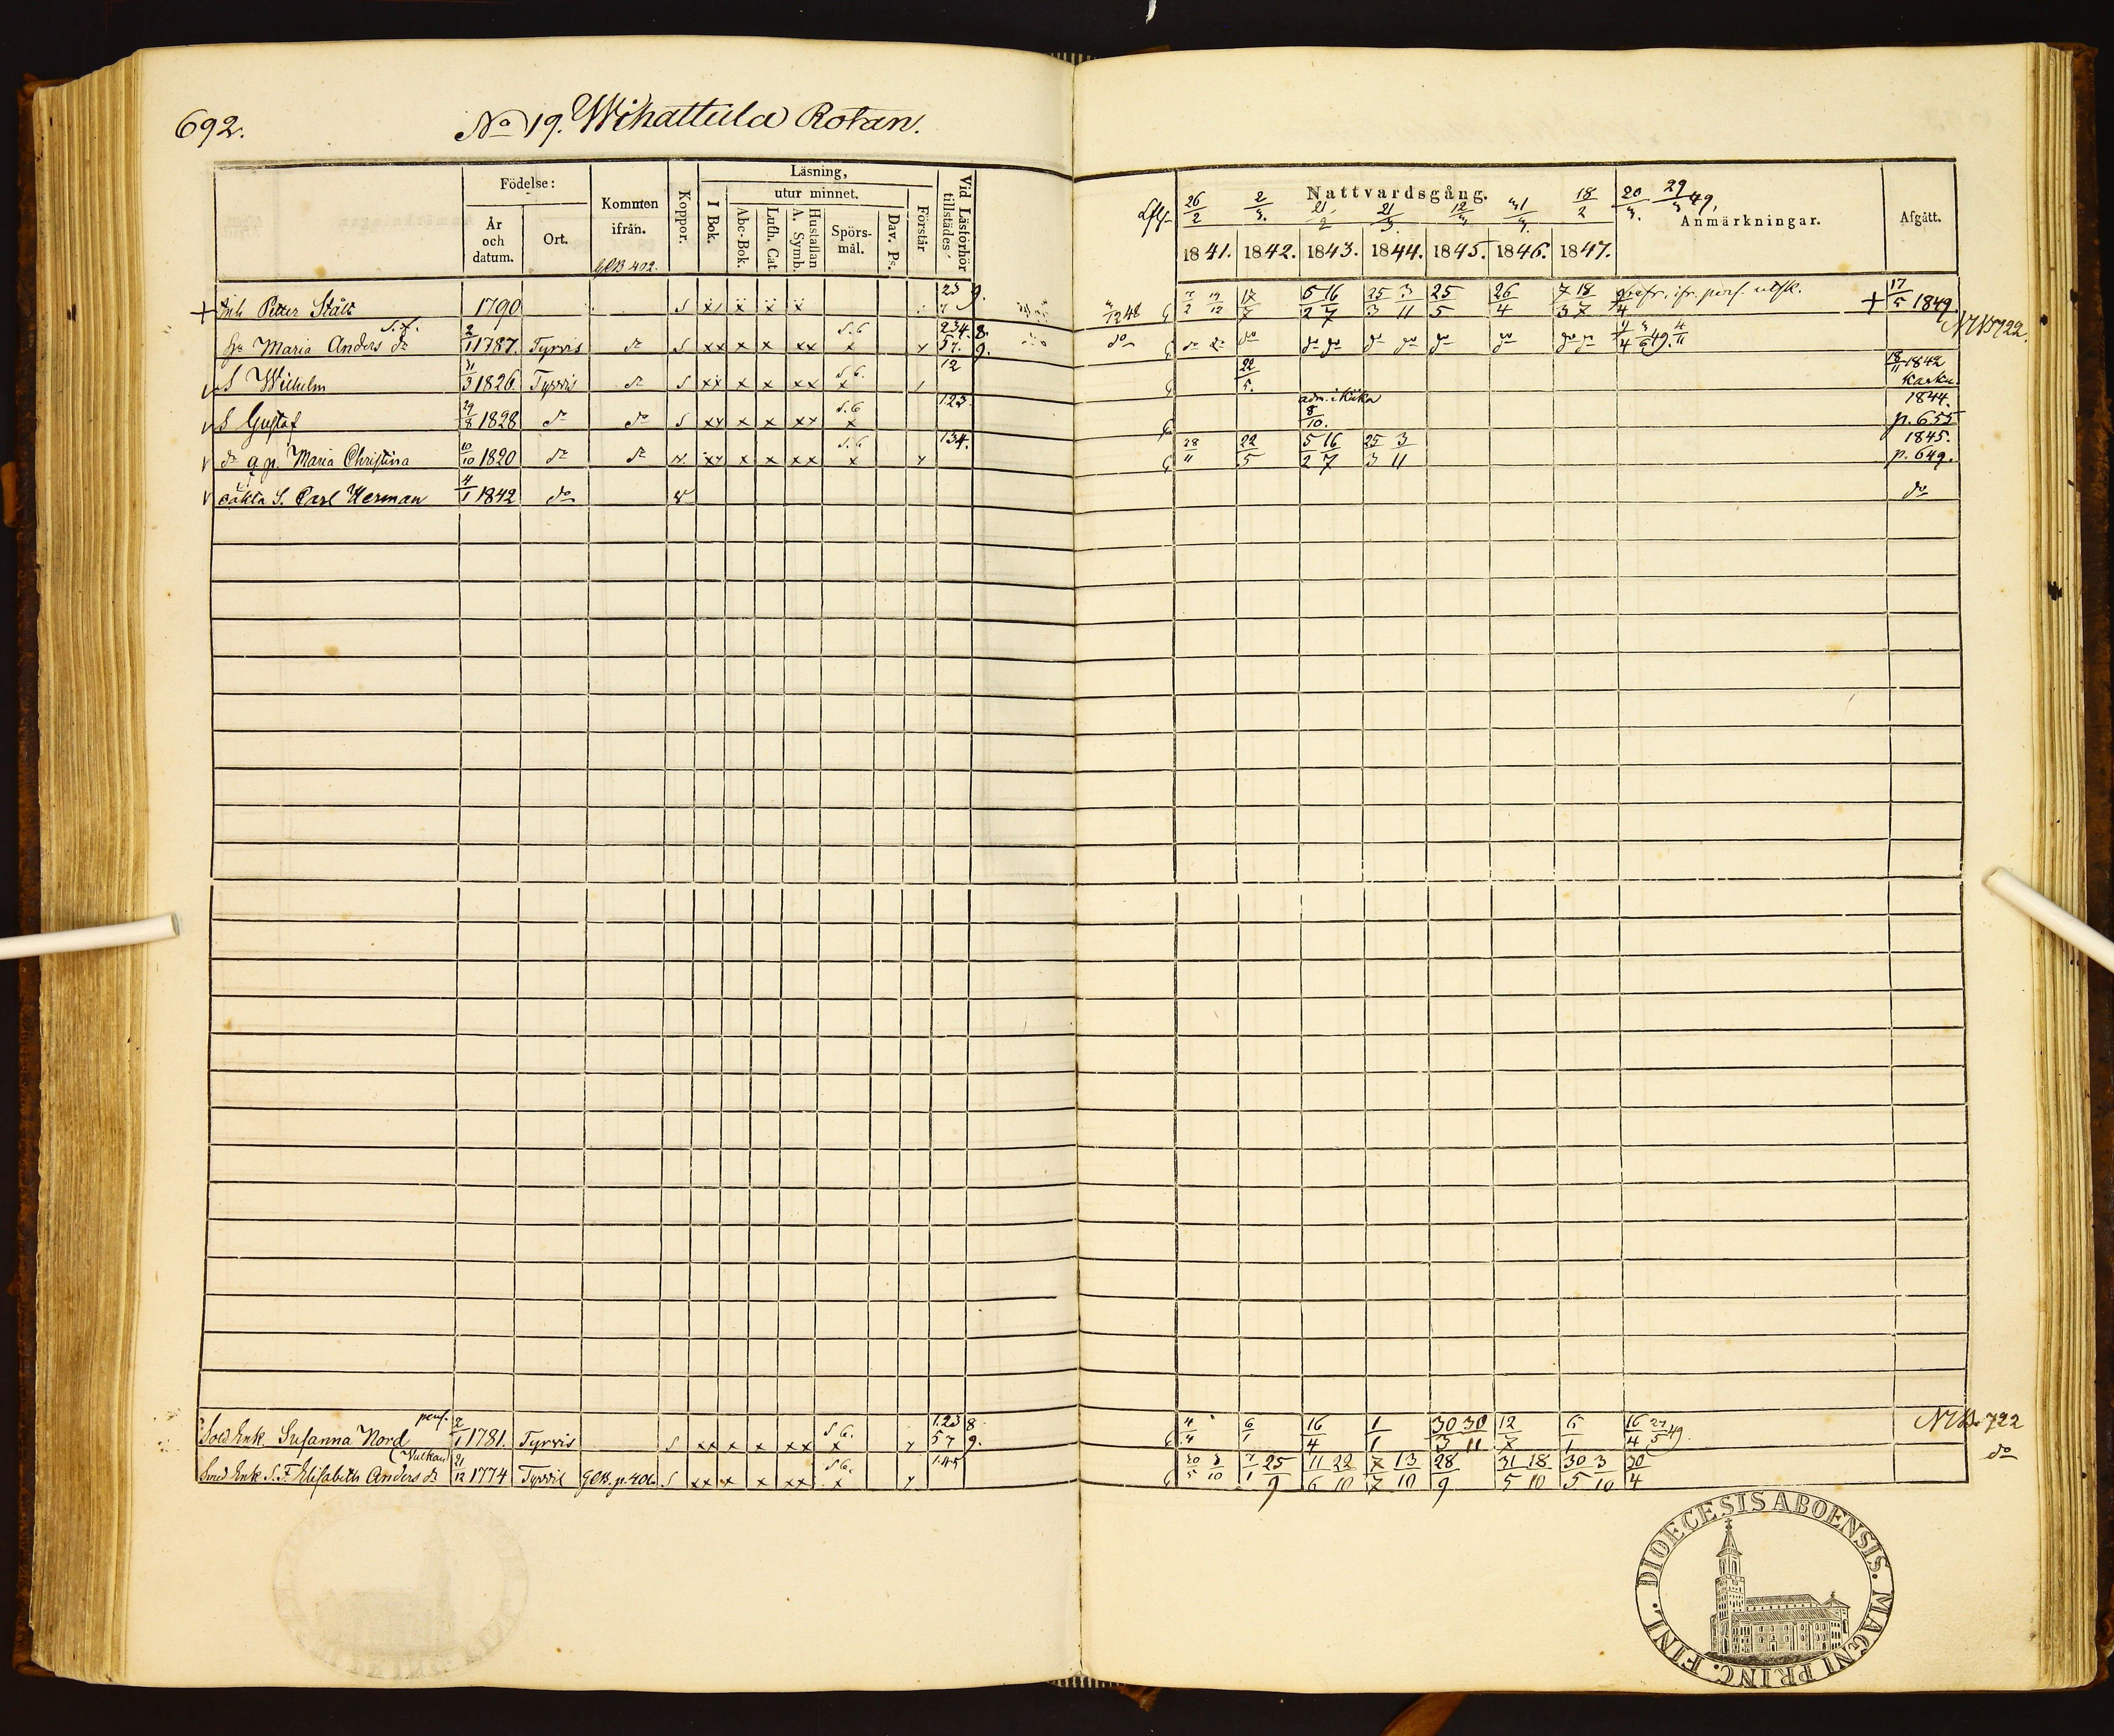 692.
No 19. Wihattula Rotan.
Födelse:
År och datum.
Ort.
Kommen ifrån.
GCB 402.
Koppor.
Läsning,
I Bok.
utur minnet.
Abc-Bok.
Luth. Cat.
Hustaflan A. Symb.
Spörs-mål.
Dav. Ps.
Förstår
Vid Läsförhör tillstädes
Nattvardsgång.
26/2 2/3. 21/2 21/3. 12/3 18/2 20/3. 29/3 49.
1841. 1842. 1843. 1844. 1845. 1846. 1847.
Anmärkningar.
Afgått.
+ Inh Petter Stålt 1790 S 23 9. 12 48 17/7 5/2 16/7 25/3 3/11 25/5 26/4 7/3 18/7 + 17/5 1849.
Hu Maria Anders dr S.f. 2/1 1787. Tyrvis do S xx x x xx S.6 x 234. 8. 57. 9. do do do do do do do do do do NB 722.
v S Wilhelm 11/3 1826 Tyrvis do S S.6. 12 22/5. 18/11 1842 Karku
v S Gustaf 29/8 1828 do do S xx x x xx S.6 x 123. adm. i Kiika 8/10. 1844. p. 655
v dr q.p. Maria Christina 10/10 1820 do do v. xx x x xx S.6 x 134. 28/11 22/5 5/2 16/7 25/3 3/11 1845. p. 649.
v oäkta S. Carl Herman 4/1 1842 do v do
Sold Enk. Susanna Nord pens. 2/1 1781. Tyrvis S xx x x xx S 6. x 1.23 8 57 9. 6/1 16/4 1/1 30/3 30/11 12/7 6/1 16/4 27/5 49. NB. 722
Smed Enk. S.F. Elisabeth Anders dr (Vulkan) 21/12 1774 Tyrvis GCB. p. 406. S xx x x xx S 6. x 145 25/9 11/6 22/10 7/7 13/10 28/9 31/5 18/10 30/5 3/10 30/4 do
DIOECESIS ABOENSIS. MAGNI PRINC. FINL.